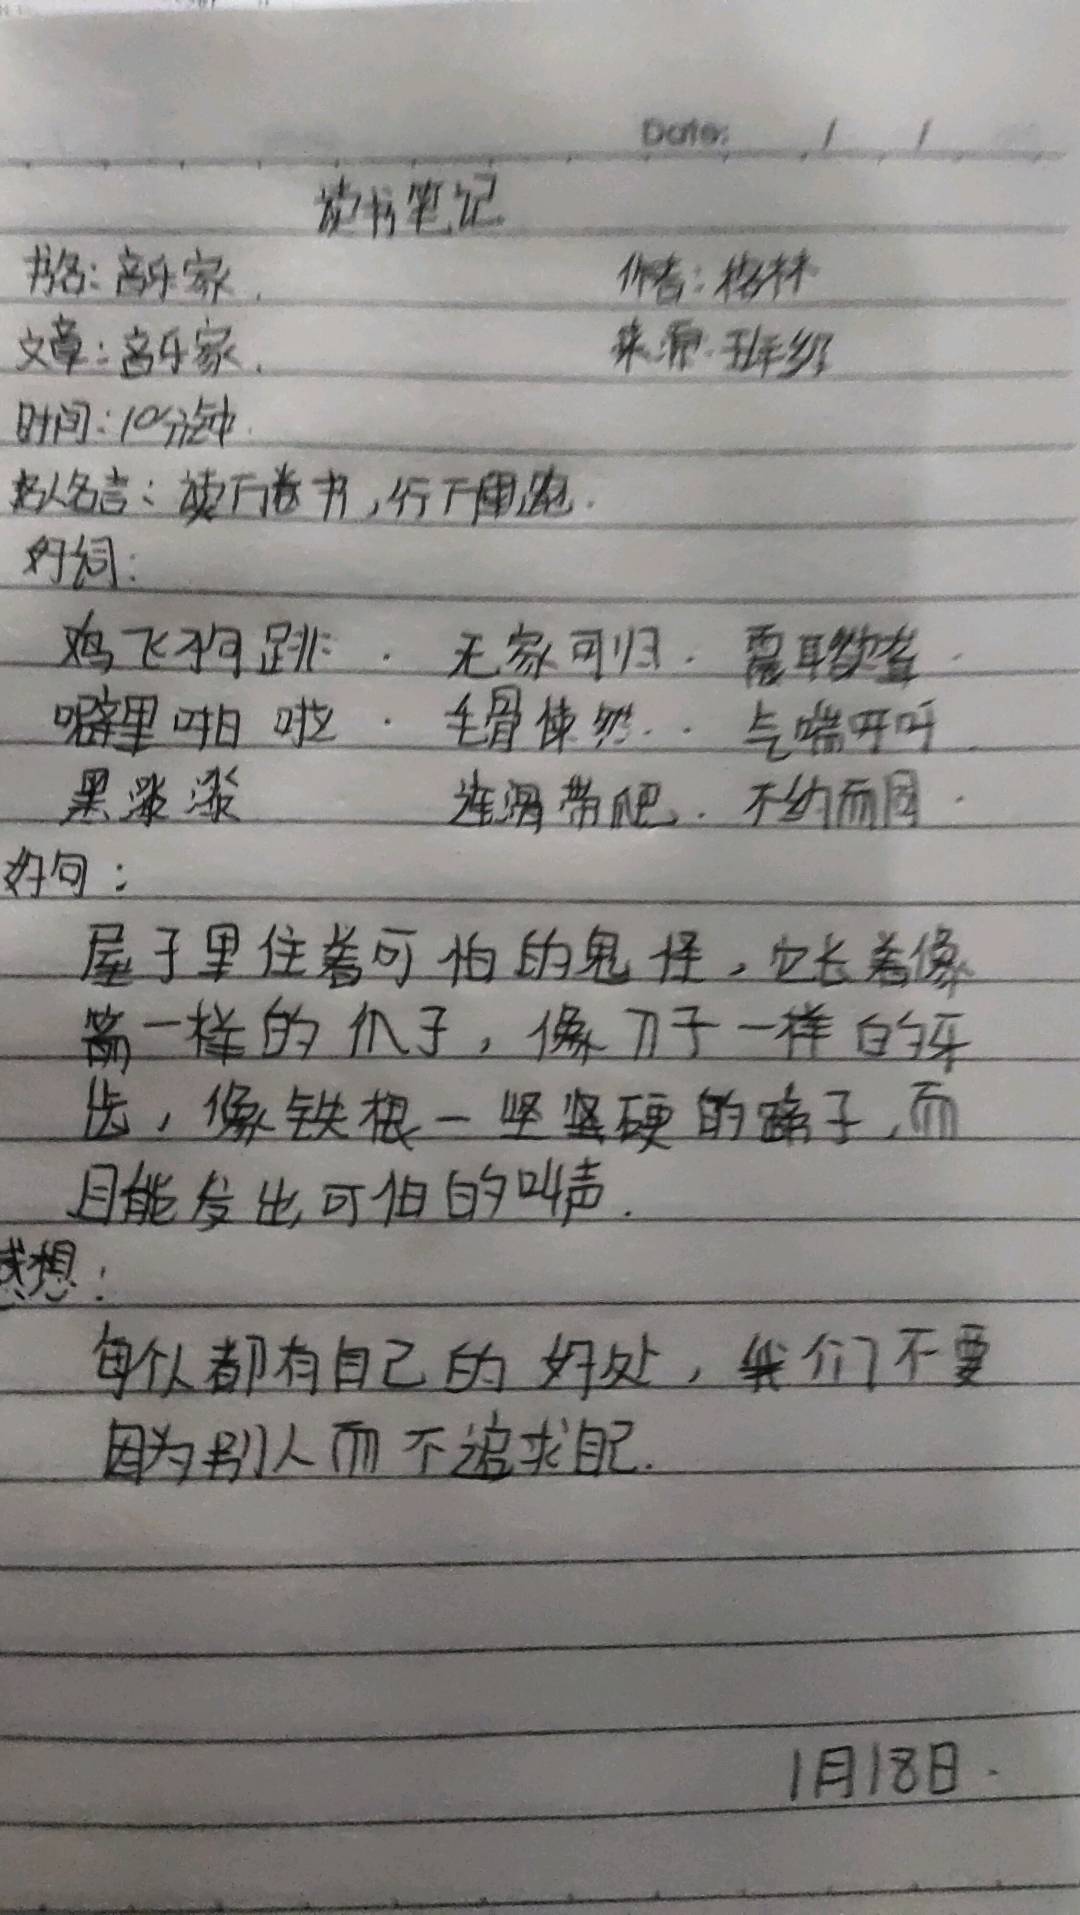 Date: / /
读书笔记
书名：音乐家． 作者：格林
文章：音乐家． 来源：班级
时间：10分钟．
名人名言：读万卷书，行万里路．
好词：
鸡飞狗跳． 无家可归． 震耳欲聋．
噼里啪啦． 毛骨悚然． 气喘吁吁．
黑漆漆 连滚带爬． 不约而同．
好句：
屋子里住着可怕的鬼怪，它长着像
箭一样的爪子，像刀子一样的牙
齿，像铁棍一坚坚硬的蹄子，而
且能发出可怕的叫声．
感想：
每个人都有自己的好处，我们不要
因为别人而不追求自己．
1月18日．